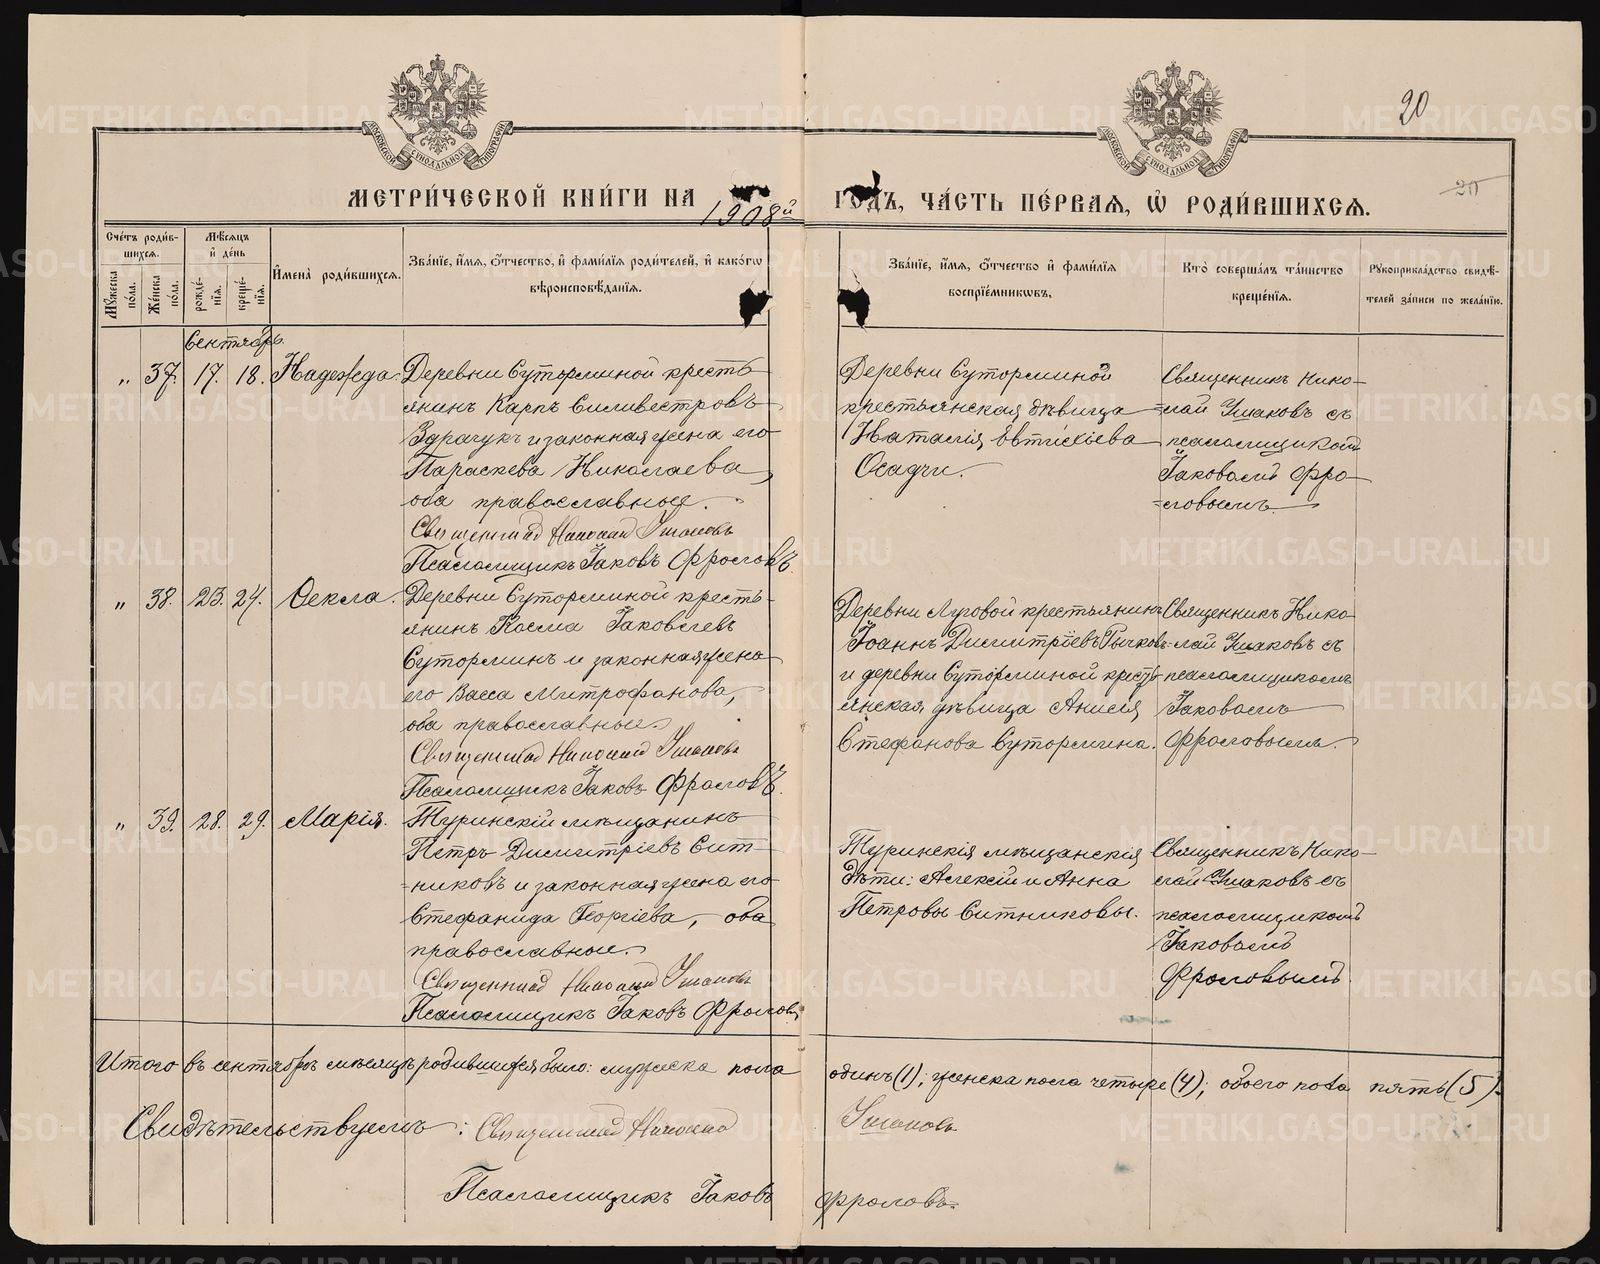 20
20
МЕТРИ́ЧЕСКОЙ КНИ́ГИ НА 1908й ГОДЪ, ЧА́СТЬ ПЕ́РВАЯ, Ѡ҆ РОДИ́ВШИХСЯ.
Сче́тъ роди́в-
шихся.
Мꙋ́жеска по́ла.
Же́нска по́ла.
Мѣ́сяцъ
и҆ де́нь
рожде́-
нїѧ.
креще́-
нїѧ.
И҆мена̀ роди́вшихсѧ.
Зва́нїе, и҆́мѧ, ѻ҆́тчество, и҆ фами́лїѧ роди́телей, и҆ како́гѡ
вѣроисповѣ́данїѧ.
Зва́нїе, и҆́мѧ, ѻ҆́тчество и҆ фами́лїѧ
воспрїе́мникѡвъ.
Кто̀ соверша́лъ та́инство
креще́нїѧ.
Рꙋкоприкла́дство свидѣ́-
телей за́писи по жела́нїю.
Сентябрь.
„ 37. 17. 18. Надежда.
Деревни Суторминой кресть-
янинъ Карпъ Силивестровъ
Здрачукъ и законная жена его
Параскева Николаева,
оба православные.
Священникъ Николай Ушаковъ
Псаломщикъ Іаковъ Фроловъ.
Деревни Суторминой
крестьянская дѣвица
Наталія Евтихіева
Осадчи.
Священникъ Нико-
=лай Ушаковъ съ
псаломщикомъ
Іаковомъ Фро-
=ловымъ.
„ 38. 23. 24. Ѳекла.
Деревни Суторминой кресть-
янинъ Косма Іаковлевъ
Суторминъ и законная жена
его Васса Митрофанова,
оба православные.
Священникъ Николай Ушаковъ
Псаломщикъ Іаковъ Фроловъ.
Деревни Луговой крестьянинъ
Іоаннъ Димитріевъ Рычковъ
и деревни Суторминой кресть-
янская дѣвица Анисія
Стефанова Сутормина.
Священникъ Нико-
=лай Ушаковъ съ
псаломщикомъ
Іаковомъ
Фроловымъ.
„ 39. 28. 29. Марія.
Туринскій мѣщанинъ
Петръ Димитріевъ Сит-
=никовъ и законная жена его
Стефанида Георгіева, оба
православные.
Священникъ Николай Ушаковъ
Псаломщикъ Іаковъ Фроловъ.
Туринскія мѣщанскія
дѣти: Алексій и Анна
Петровы Ситниковы.
Священникъ Нико-
лай Ушаковъ съ
псаломщикомъ
Іаковомъ
Фроловымъ.
Итого въ сентябрѣ мѣсяцѣ родившихся было: мужеска пола одинъ (1); женска пола четыре (4); обоего пола пять (5).
Свидѣтельствуемъ: Священникъ Николай Ушаковъ
Псаломщикъ Іаковъ Фроловъ.